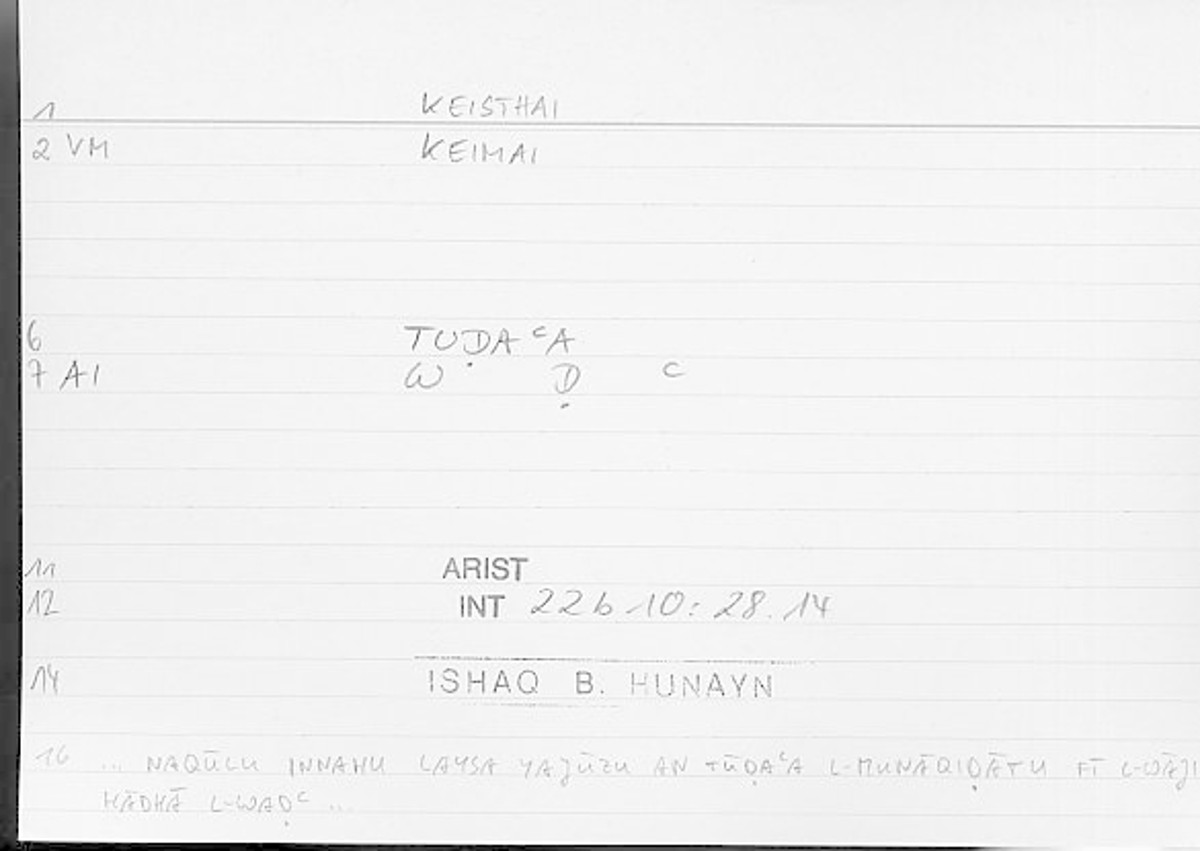 1 KEISTHAI
2 VM KEIMAI
6 TUḌAᶜA
7 AI W Ḍ ᶜ
11 ARIST
12 INT 22b 10: 28.14
14 ISHAQ B. HUNAYN
16 ... NAQŪLU INNAHU LAYSA YAJŪZU AN TŪḌAᶜA L-MUNĀQIḌĀTU FĪ L-WĀJI
HĀDHĀ L-WAḌᶜ ...